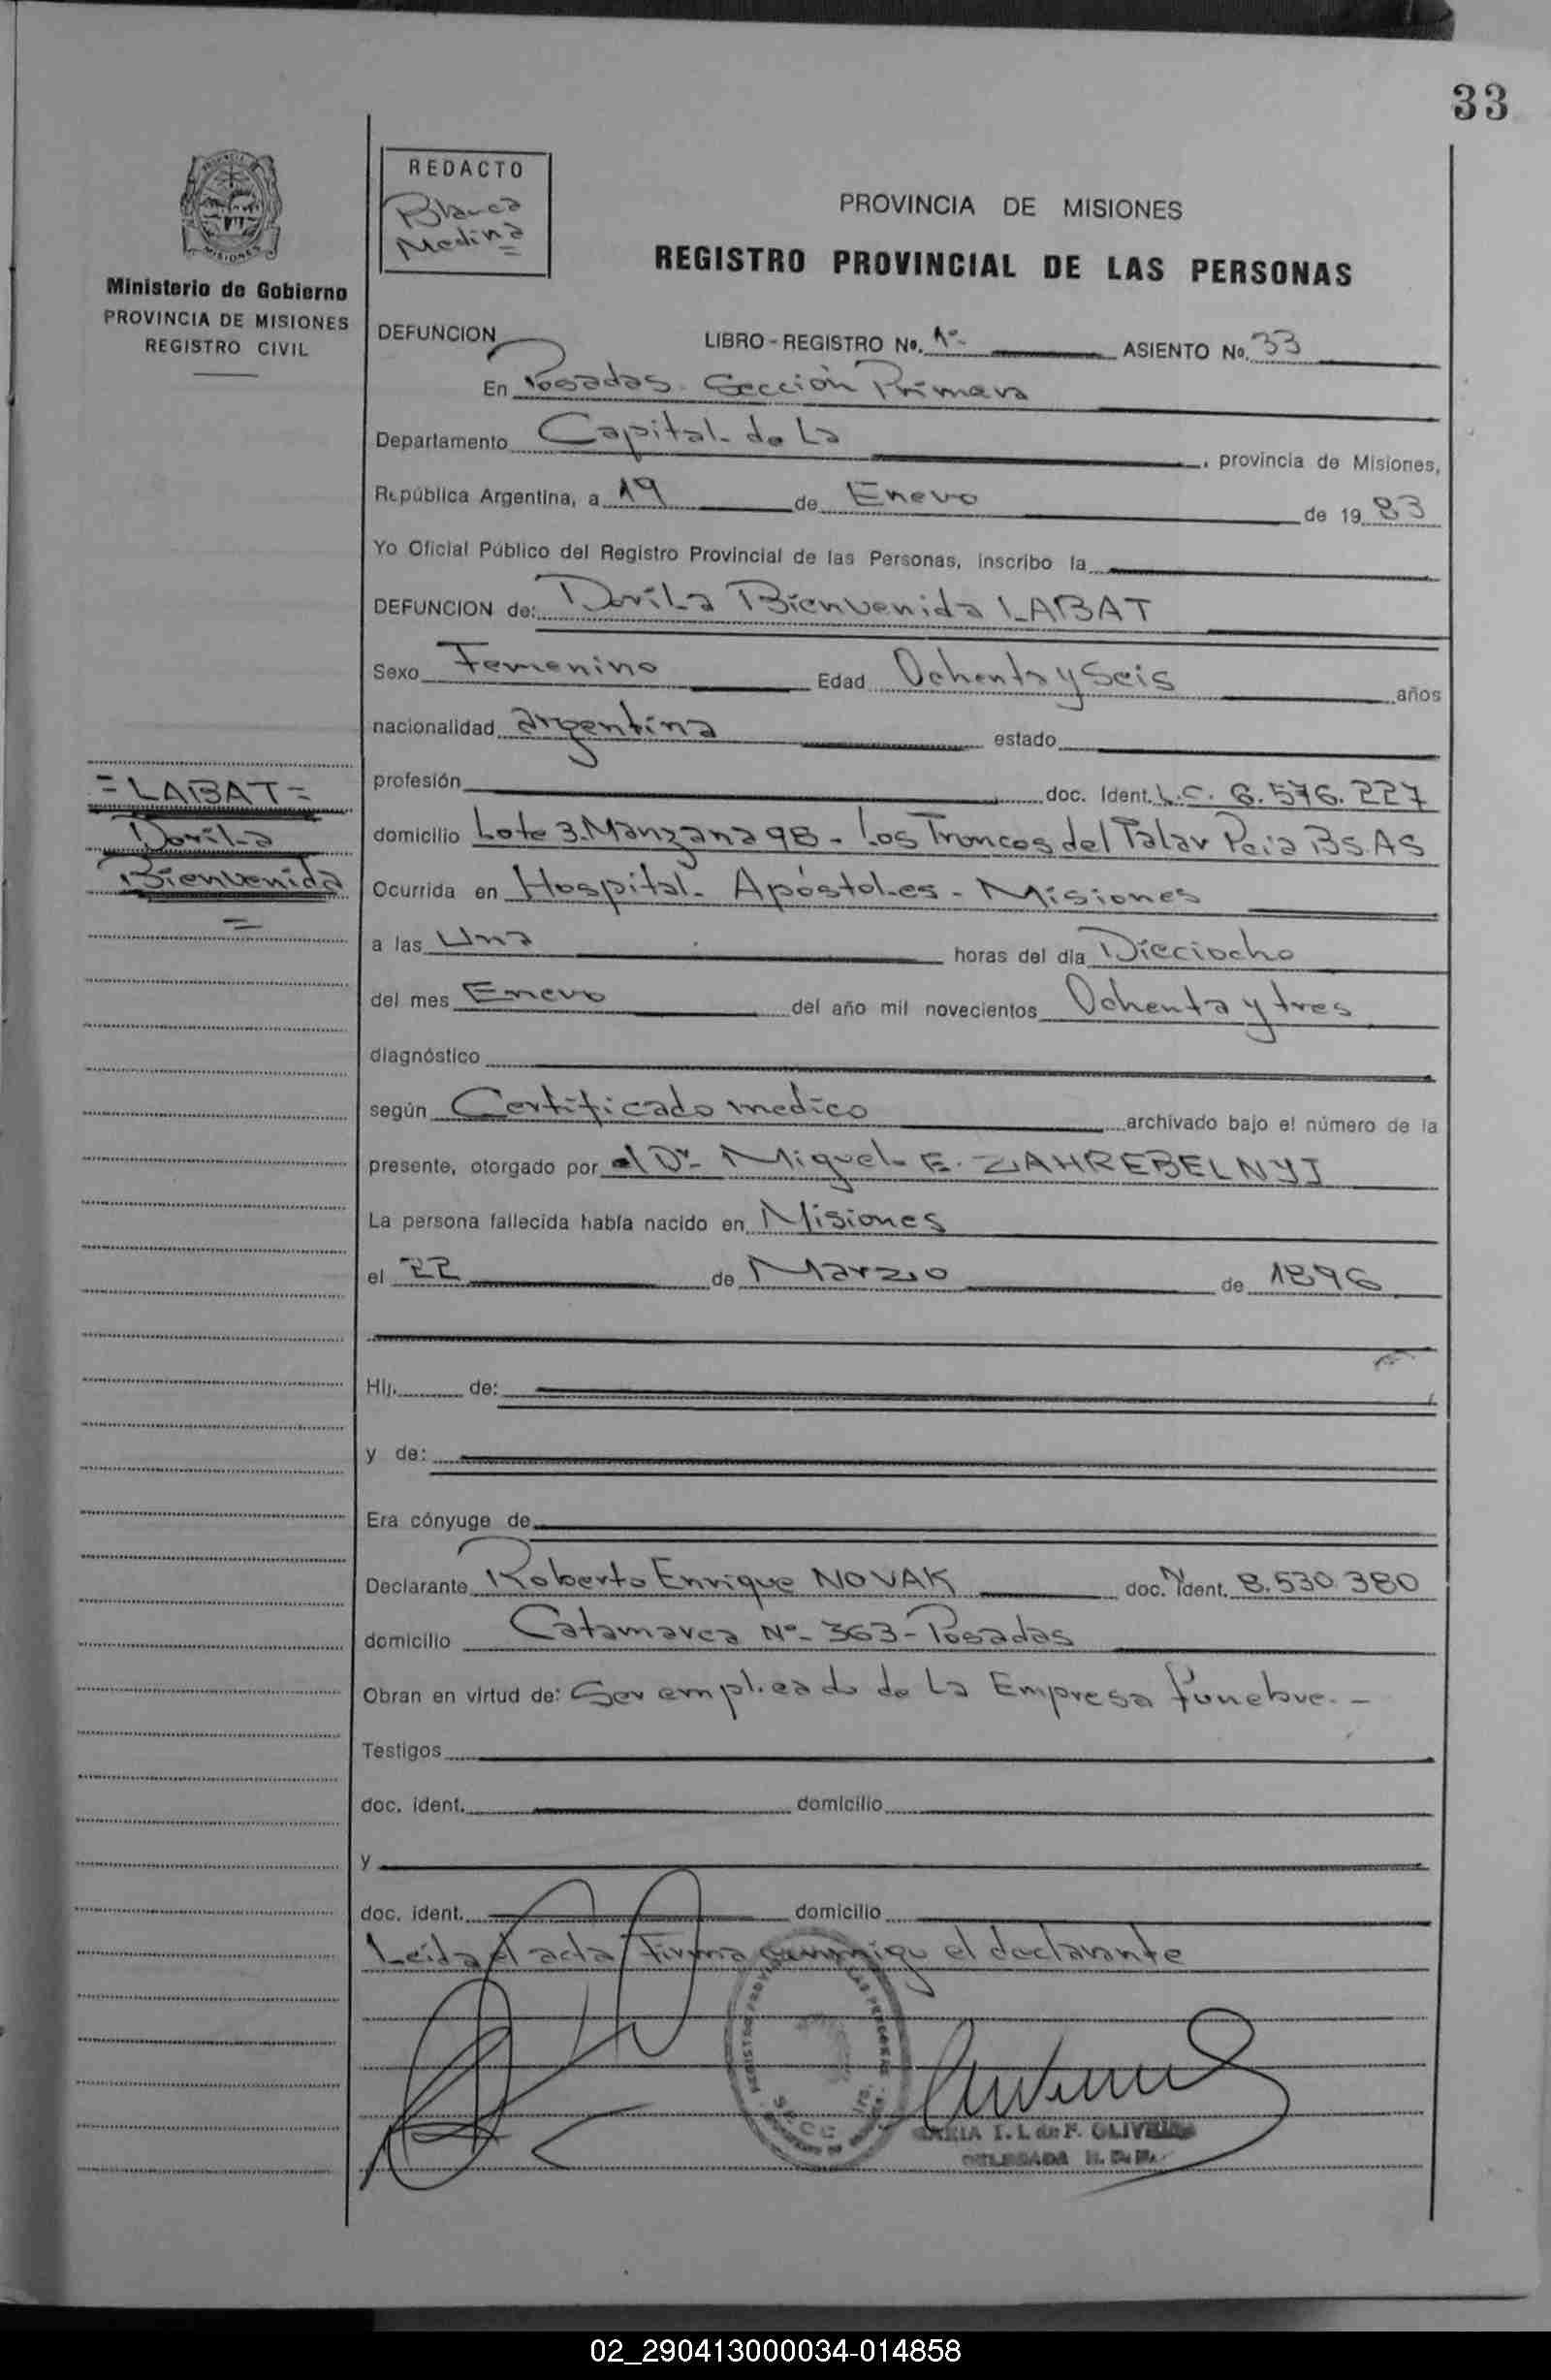 33
REDACTO
Blanca
Medina
PROVINCIA DE MISIONES
REGISTRO PROVINCIAL DE LAS PERSONAS
MISIONES
Ministerio de Gobierno
PROVINCIA DE MISIONES
REGISTRO CIVIL
DEFUNCION LIBRO-REGISTRO No. 1º- ASIENTO No. 33
En Posadas Sección Primera
Departamento Capital de La , provincia de Misiones,
República Argentina, a 19 de Enero de 19 83
Yo Oficial Público del Registro Provincial de las Personas, inscribo la
DEFUNCION de: Dorila Bienvenida LABAT
Sexo Femenino Edad Ochenta y Seis años
nacionalidad argentina estado
profesión doc. Ident. L.C. 6.576.227
domicilio Lote 3.Manzana 98 - Los Troncos del Talar Pcia BS.AS
Ocurrida en Hospital - Apóstoles - Misiones
a las Una horas del día Dieciocho
del mes Enero del año mil novecientos Ochenta y tres
diagnóstico
según Certificado medico archivado bajo el número de la
presente, otorgado por el Dr. Miguel E. ZAHREBELNYJ
La persona fallecida había nacido en Misiones
el 22 de Marzo de 1896
Hij. de:
y de:
Era cónyuge de
Declarante Roberto Enrique NOVAK doc. Ident. 8.530.380
domicilio Catamarca Nº- 363 - Posadas
Obran en virtud de: Ser empleado de La Empresa funebre. -
Testigos
doc. ident. domicilio
y
doc. ident. domicilio
Leida el acta firma conmigo el declarante
= LABAT =
Dorila
Bienvenida
=
MARIA I. L. de F. OLIVEIRA
DELEGADA
02_290413000034-014858